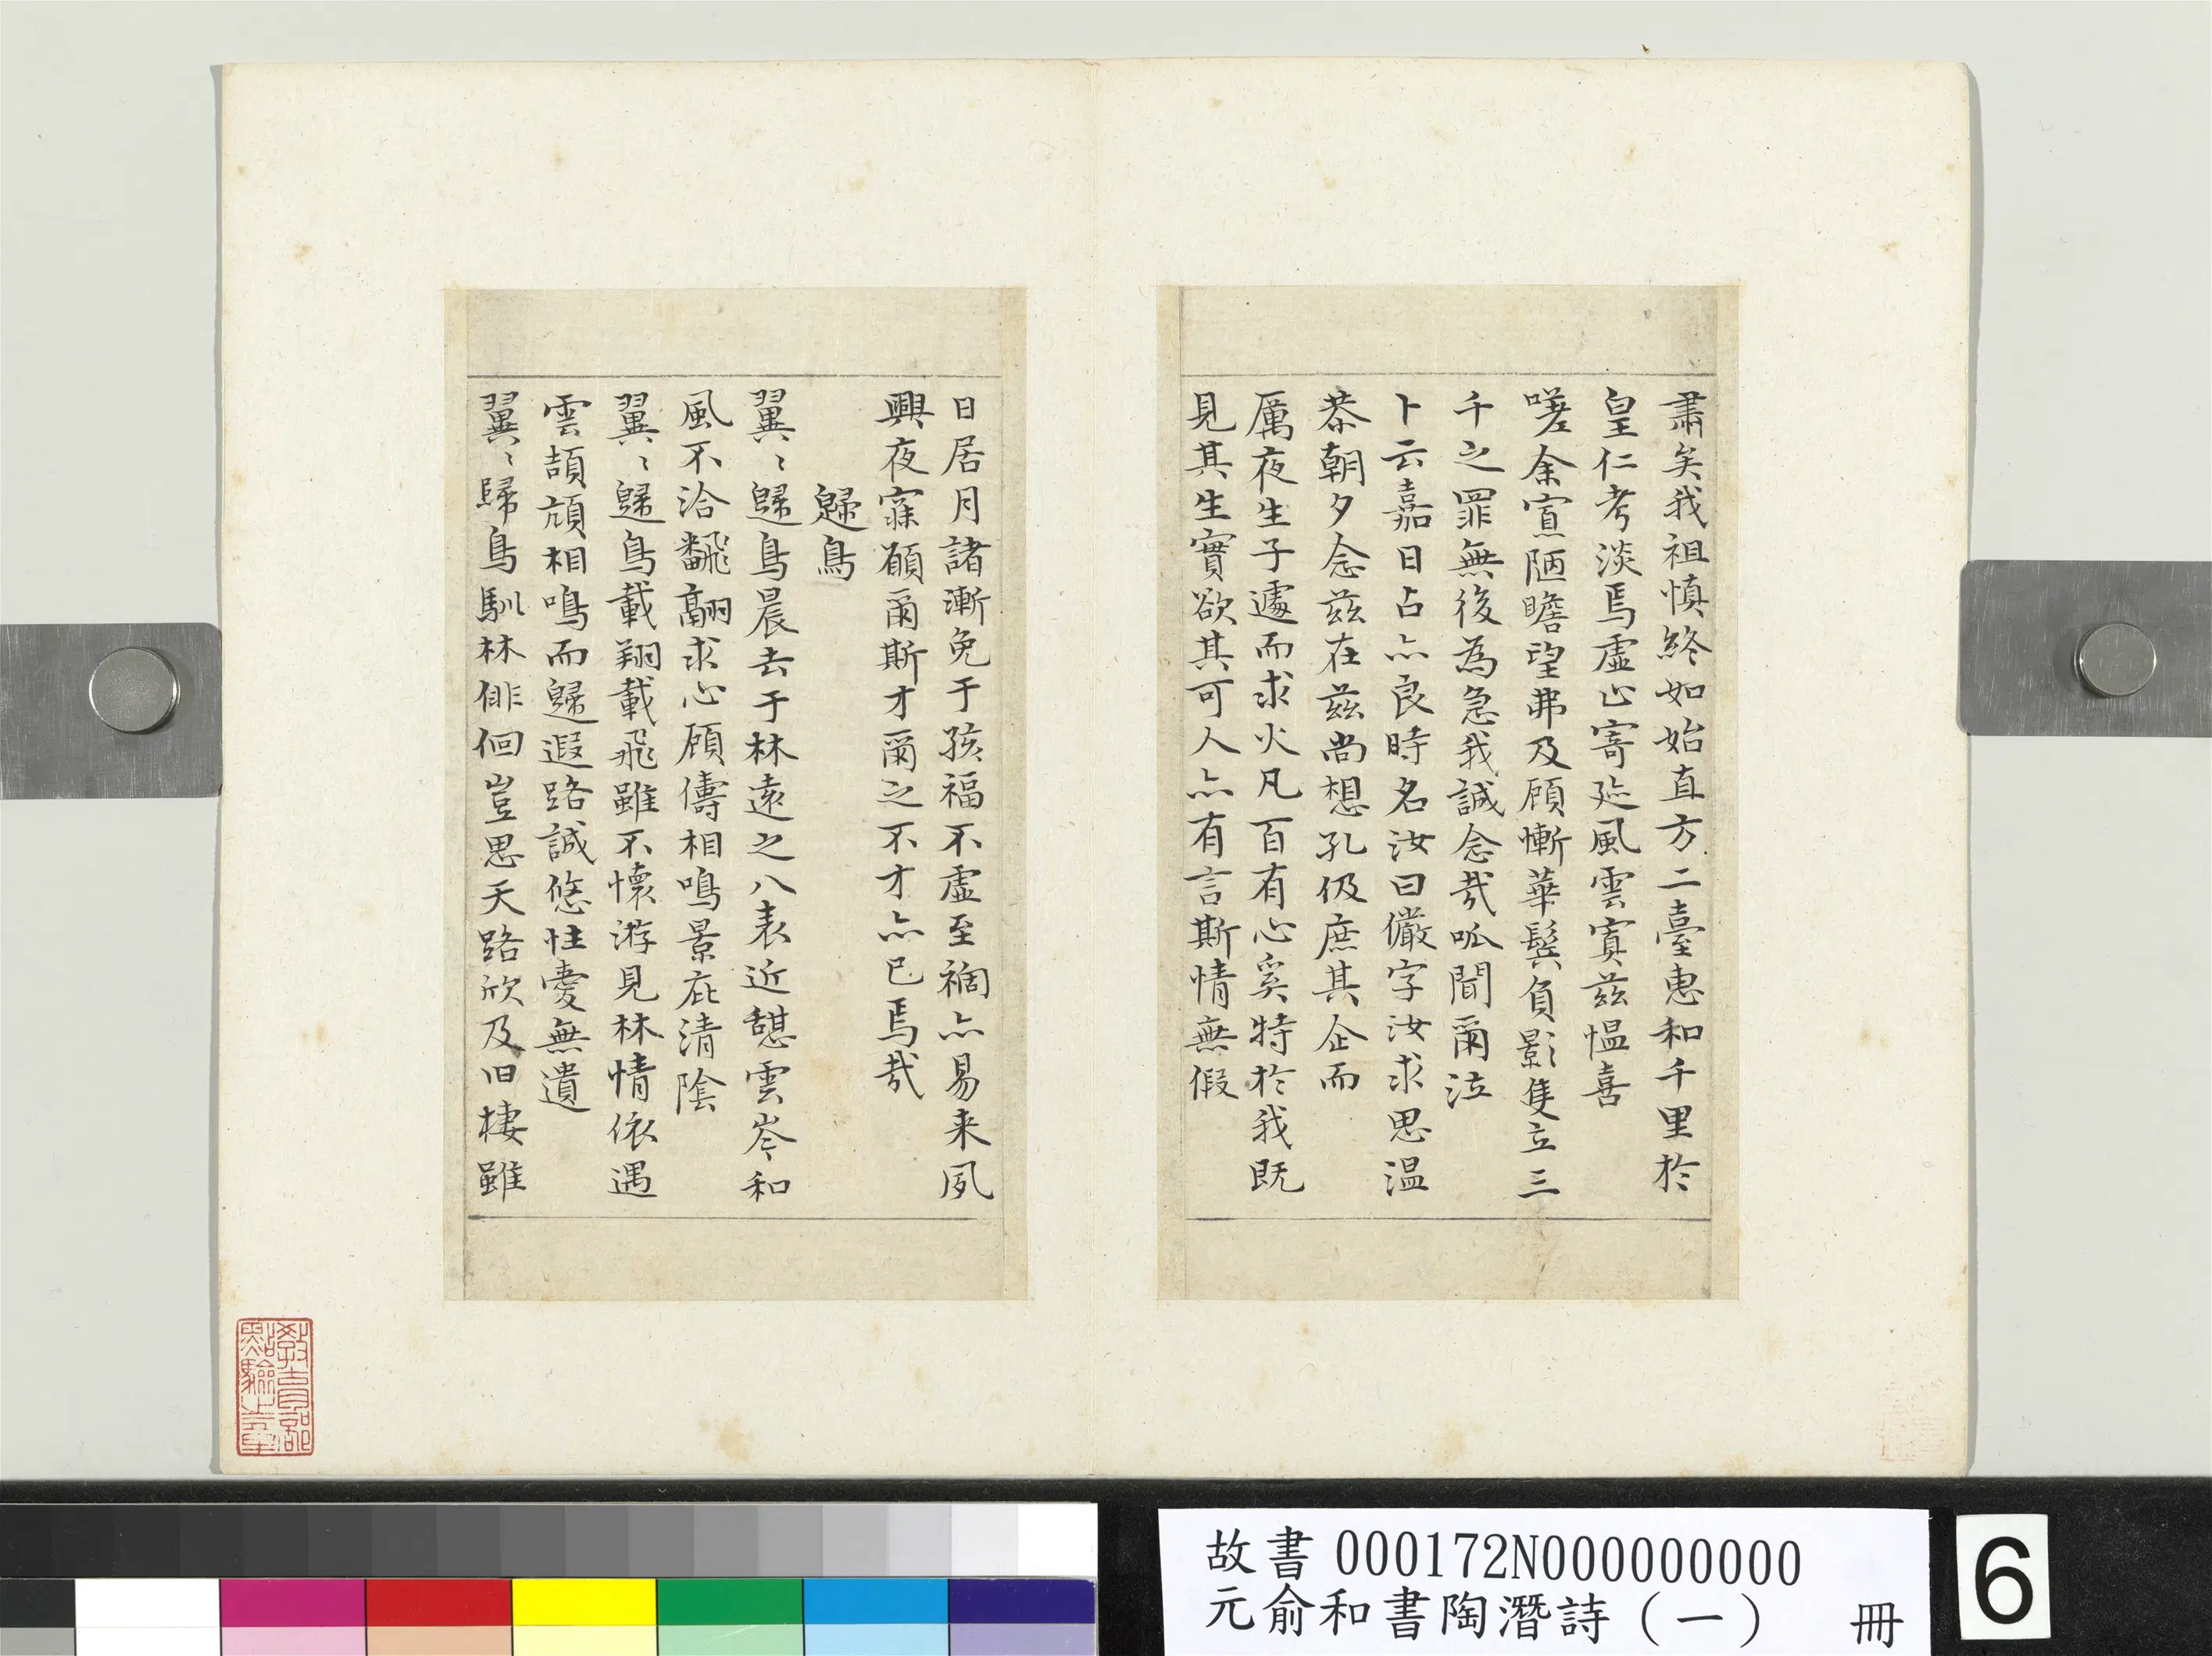 肅矣我祖慎終如始直方二臺惠和千里於
皇仁考淡焉虛止寄迹風雲寘茲慍喜
嗟余寡陋瞻望弗及顧慚華鬢負影隻立三
千之罪無後為急我誠念哉呱聞爾泣
卜云嘉日占亦良時名汝曰儼字汝求思溫
恭朝夕念茲在茲尚想孔伋庶其企而
厲夜生子遽而求火凡百有心奚特於我既
見其生實欲其可人亦有言斯情無假
日居月諸漸免于孩福不虛至禍亦易来夙
興夜寐願爾斯才爾之不才亦已焉哉
歸鳥
翼〻歸鳥晨去于林遠之八表近憩雲岑和
風不洽翻翮求心顧儔相鳴景庇清陰
翼〻歸鳥載翔載飛雖不懷游見林情依遇
雲頡頏相鳴而歸遐路誠悠性愛無遺
翼〻歸鳥馴林徘徊豈思天路欣及旧棲雖
教育部
點驗之章
故書 000172N000000000
元俞和書陶潛詩（一） 冊
6